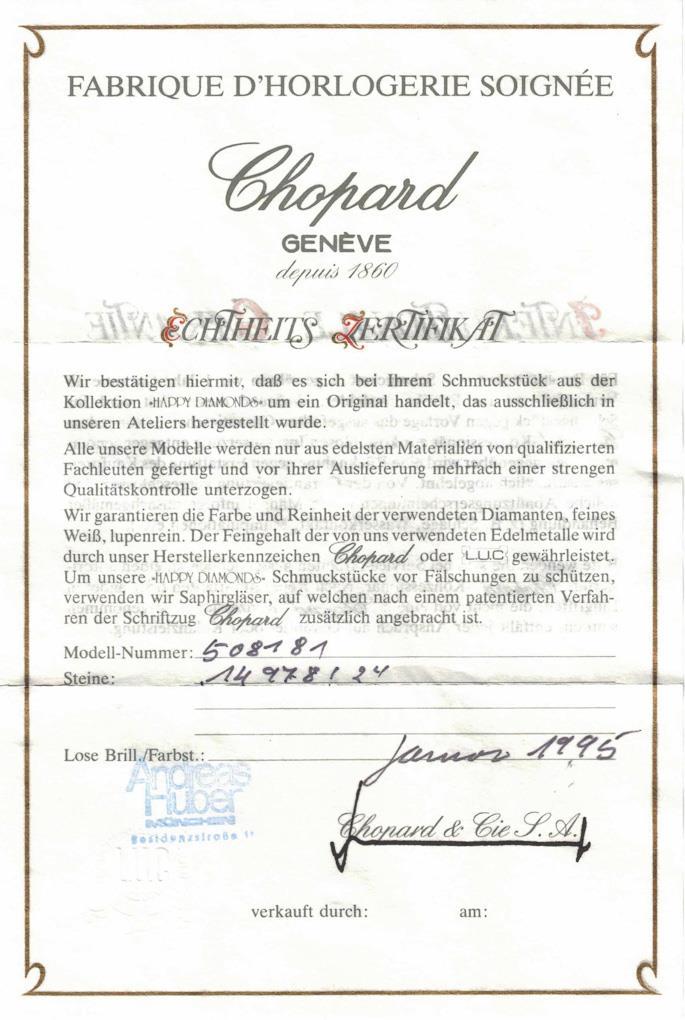 FABRIQUE D'HORLOGERIE SOIGNÉE
Chopard
GENÈVE
depuis 1860
ECHTHEITS ZERTIFIKAT
Wir bestätigen hiermit, daß es sich bei Ihrem Schmuckstück aus der
Kollektion «HAPPY DIAMONDS» um ein Original handelt, das ausschließlich in
unseren Ateliers hergestellt wurde.
Alle unsere Modelle werden nur aus edelsten Materialien von qualifizierten
Fachleuten gefertigt und vor ihrer Auslieferung mehrfach einer strengen
Qualitätskontrolle unterzogen.
Wir garantieren die Farbe und Reinheit der verwendeten Diamanten, feines
Weiß, lupenrein. Der Feingehalt der von uns verwendeten Edelmetalle wird
durch unser Herstellerkennzeichen Chopard oder L.U.C gewährleistet.
Um unsere «HAPPY DIAMONDS» Schmuckstücke vor Fälschungen zu schützen,
verwenden wir Saphirgläser, auf welchen nach einem patentierten Verfah-
ren der Schriftzug Chopard zusätzlich angebracht ist.
Modell-Nummer: 508181
Steine: 149781 24
Lose Brill./Farbst.: Januar 1995
Andreas
Huber
MÜNCHEN
Residenzstraße 11
Chopard & Cie S.A.
LUC
verkauft durch: am: